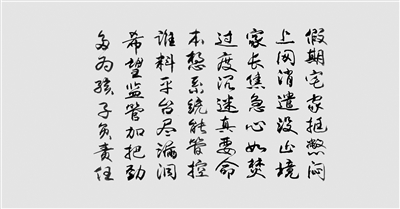 假期宅家挺憋闷
上网消遣没止境
家长焦急心如焚
过度沉迷真要命
本想系统能管控
谁料平台尽漏洞
希望监管加把劲
多为孩子负责任